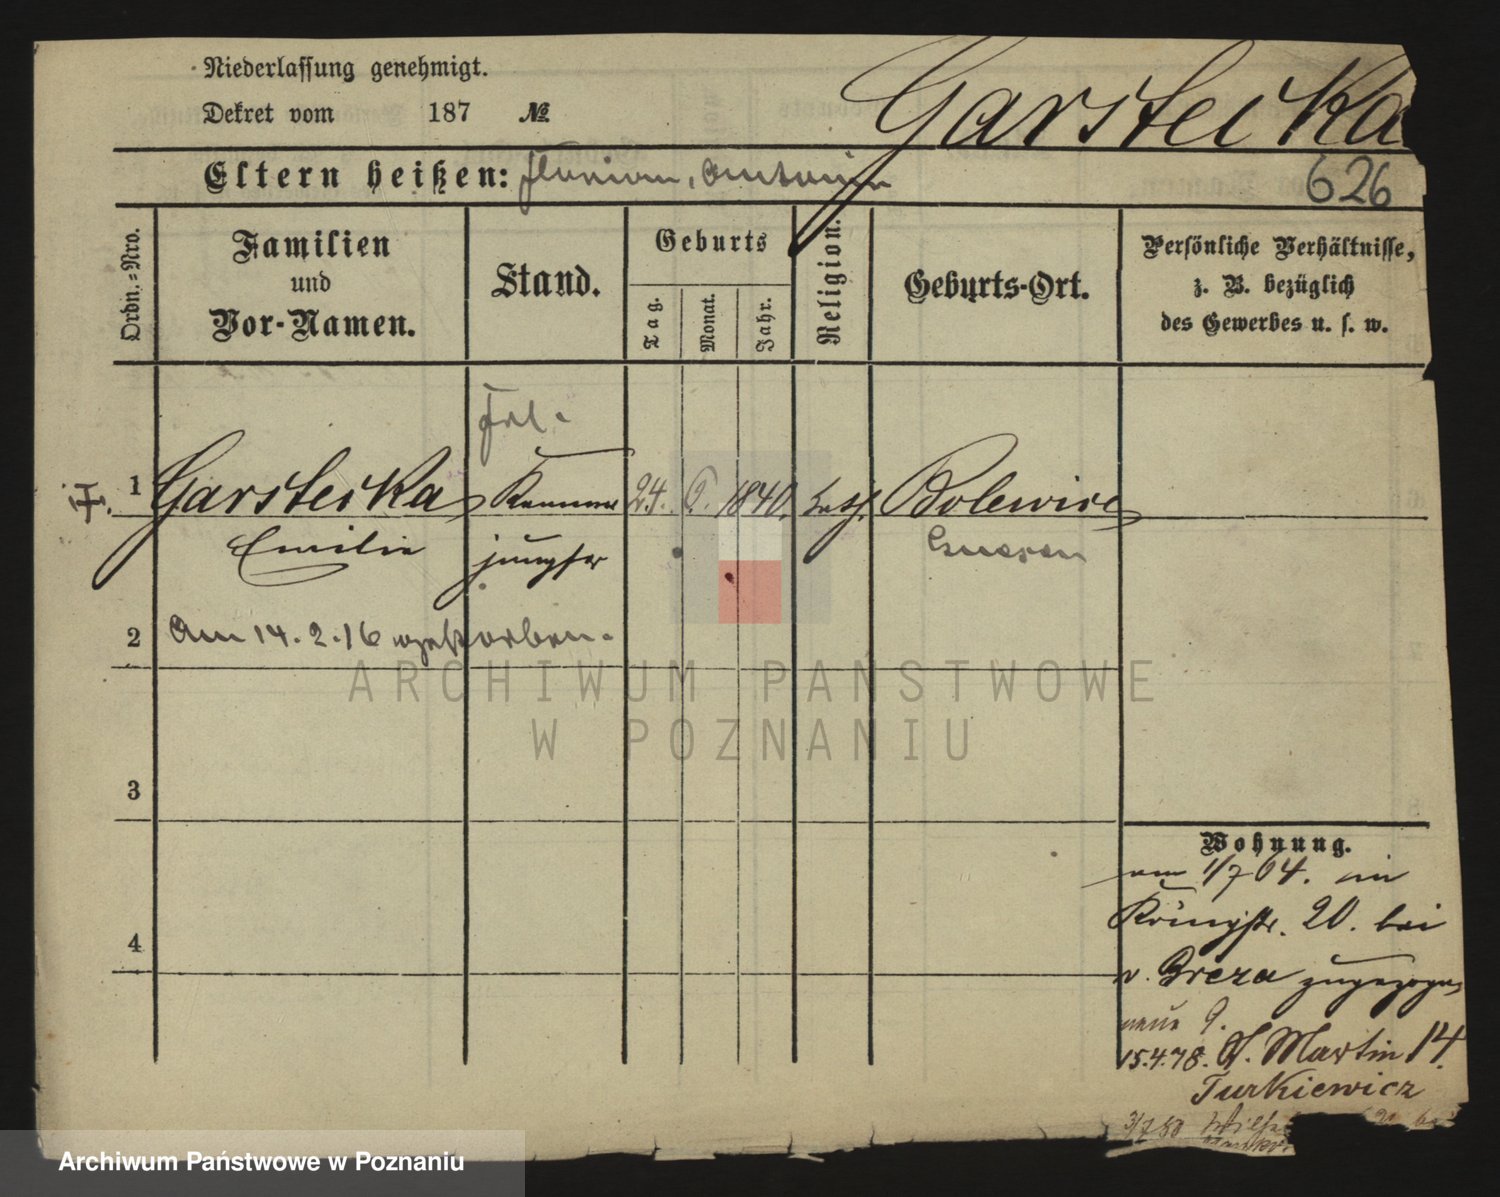 Niederlassung genehmigt.
Dekret vom 187 №
Garsteika
Eltern heißen: Florian, Antonina
626
Ordn.-Nro.
Familien
und
Vor-Namen.
Stand.
Geburts
Tag.
Monat.
Jahr.
Religion.
Geburts-Ort.
Persönliche Verhältnisse,
z. B. bezüglich
des Gewerbes u. s. w.
Frl.
1 Garsteika Kammer 24. 9. 1840. kath. Bolewice
Emilie jungfer
2 Am 14.2.16 gestorben.
3
4
Wohnung.
am 1/7 64. in
Königstr. 20. bei
v. Breza zugezogen
neue 9.
15.4.78. St. Martin 14.
Turkiewicz
3/7 80
ARCHIWUM PAŃSTWOWE
W POZNANIU
Archiwum Państwowe w Poznaniu